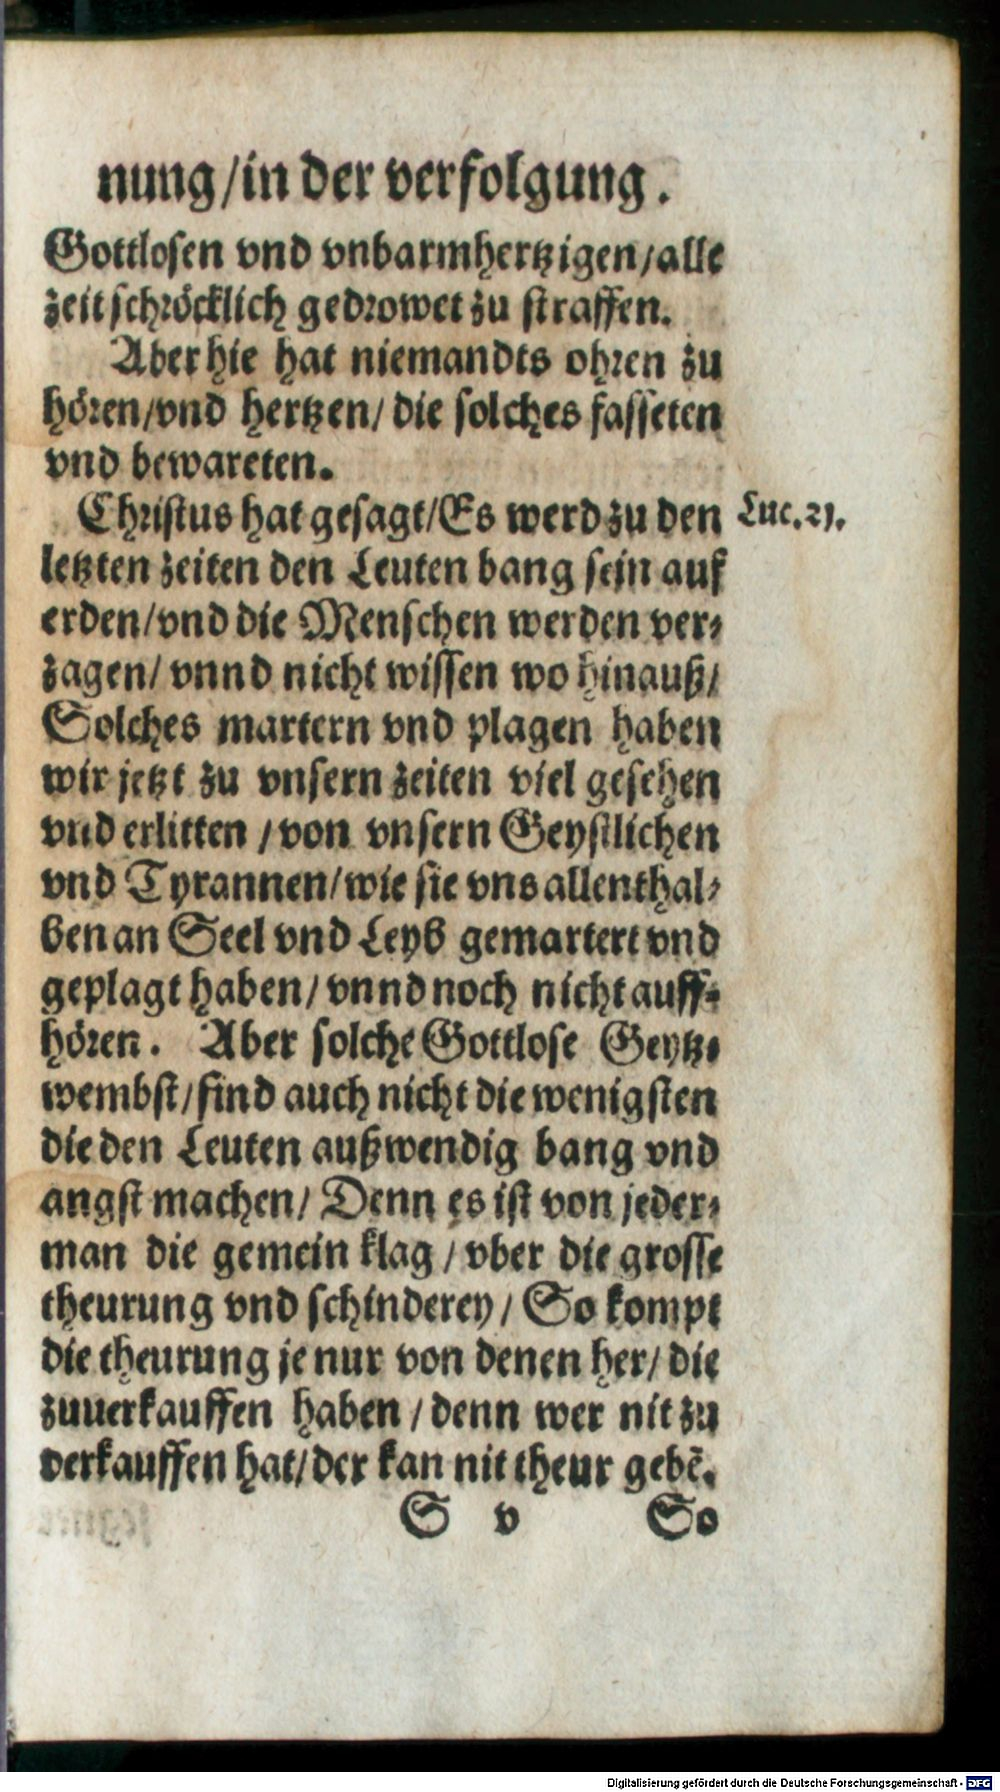 nung/in der verfolgung.
Gottlosen vnd vnbarmhertzigen/alle
zeit schröcklich gedrowet zu straffen.
Aber hie hat niemandts ohren zu
hören/vnd hertzen/ die solches fasseten
vnd bewareten.
Christus hat gesagt/Es werd zu den
Luc. 21.
letzten zeiten den Leuten bang sein auf
erden/vnd die Menschen werden ver⸗
zagen/ vnnd nicht wissen wo hinauß/
Solches martern vnd plagen haben
wir jetzt zu vnsern zeiten viel gesehen
vnd erlitten /von vnsern Geystlichen
vnd Tyrannen/wie sie vns allenthal⸗
ben an Seel vnd Leyb gemartert vnd
geplagt haben/ vnnd noch nicht auff⸗
hören. Aber solche Gottlose Geytz⸗
wembst/sind auch nicht die wenigsten
die den Leuten außwendig bang vnd
angst machen/ Denn es ist von jeder⸗
man die gemein klag / vber die grosse
theurung vnd schinderey/ So kompt
die theurung je nur von denen her/ die
zuuerkauffen haben /denn wer nit zu
verkauffen hat/der kan nit theur gebẽ.
S v So
Digitalisierung gefördert durch die Deutsche Forschungsgemeinschaft - DFG